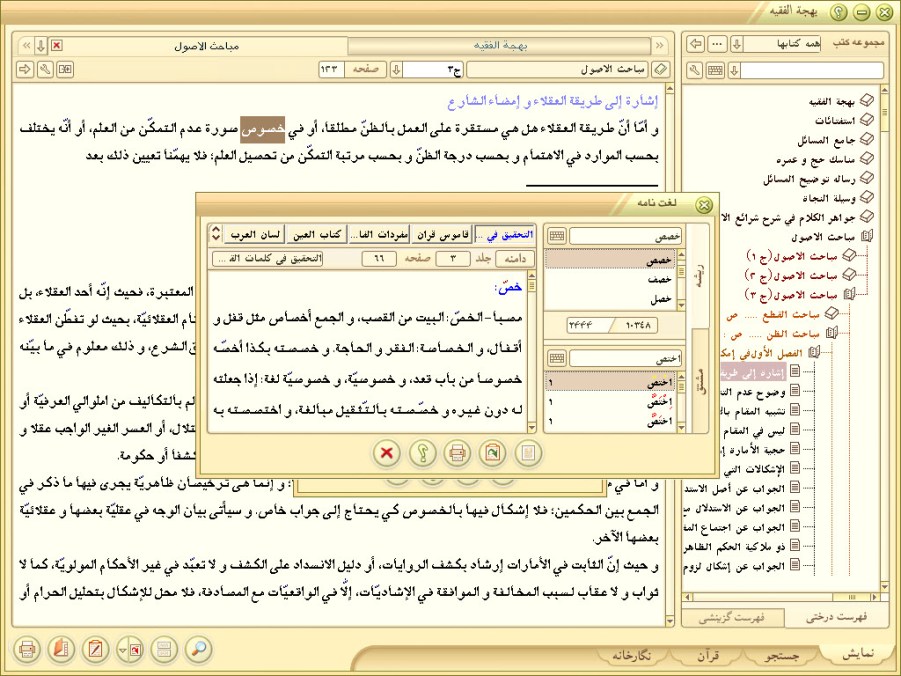 بهجة الفقيه
مجموعه کتب
همه کتابها
بهجة الفقیه
استفتائات
جامع المسائل
مناسك حج و عمره
رساله توضیح المسائل
وسیلة النجاة
جواهر الکلام في شرح شرائع الا
مباحث الاصول
مباحث الاصول(ج ۱)
مباحث الاصول(ج ۲)
مباحث الاصول(ج ۳)
مباحث القطع .... ص
مباحث الظن .... ص :
الفصل الأول‌في إمک
إشارة إلى طریقة
وضوح عدم الت
تشبیه المقام با
لیس في المقام
حجیة الأمارة إ
الإشکالات التي
الجواب عن أصل الاستد
الجواب عن الاستدلال مع
الجواب عن اجتماع المف
ذو ملاکیة الحکم الظاهر
الجواب عن إشکال لزوم
فهرست درختی
فهرست گزینشی
بهجة الفقیه
مباحث الاصول
مباحث الاصول
ج۳
صفحه
۱۳۳
إشارة إلى طريقة العقلاء و إمضاء الشارع
و أمّا أنّ طريقة العقلاء هل هي مستقرة على العمل بالظنّ مطلقا، أو في خصوص صورة عدم التمكّن من العلم، أو أنّه يختلف
بحسب الموارد في الاهتمام و بحسب درجة الظنّ و بحسب مرتبة التمكّن من تحصيل العلم؛ فلا يهمّنا تعيين ذلك بعد
المعتبرة، فحيث إنّه أحد العقلاء، بل
ام العقلائيّة، بحيث لو تفطّن العقلاء
ق الشرع، و ذلك معلوم في ما بيّنه
لم بالتكاليف من الموالي العرفيّة أو
تلال، أو العسر الغير الواجب عقلا و
كشفا أو حكومة.
لغت نامه
خصص
خصص
خصف
خصل
۱۰۳۴۸
۲۴۴۴
اختص
اختص ۱
اِخْتَصَّ ۱
اختصّ ۱
ریشه
مشتق
التحقیق في ...
قاموس قرآن
مفردات الفا...
کتاب العین
لسان العرب
دامنه
جلد
۳
صفحه
۶۶
التحقیق في کلمات الق ...
خصّ:
مصبا- الخصّ: البيت من القصب، و الجمع أخصاص مثل قفل و
أقفال، و الخصاصة: الفقر و الحاجة. و خصصته بكذا أخصّه
خصوصا من باب قعد، و خصوصيّة، و خصوصيّة لغة: إذا جعلته
له دون غيره و خصّصته بالتثقيل مبالغة، و اختصصته به
و أما في م
؛ و إنما هى ترخيصان ظاهريّة يجرى فيها ما ذكر في
الجمع بين الحكمين؛ فلا إشكال فيها بالخصوص كي يحتاج إلى جواب خاص. و سيأتى بيان الوجه في عقليّة بعضها و عقلائيّة
بعضها الآخر.
و حيث إنّ الثابت في الأمارات إرشاد بكشف الروايات، أو دليل الانسداد على الكشف و لا تعبّد في غير الأحكام المولويّة، كما لا
ثواب و لا عقاب لسبب المخالفة و الموافقة في الإشاديّات، إلّا في الواقعيّات مع المصادفة، فلا محل للإشكال بتحليل الحرام أو
نمایش
جستجو
قرآن
نگارخانه